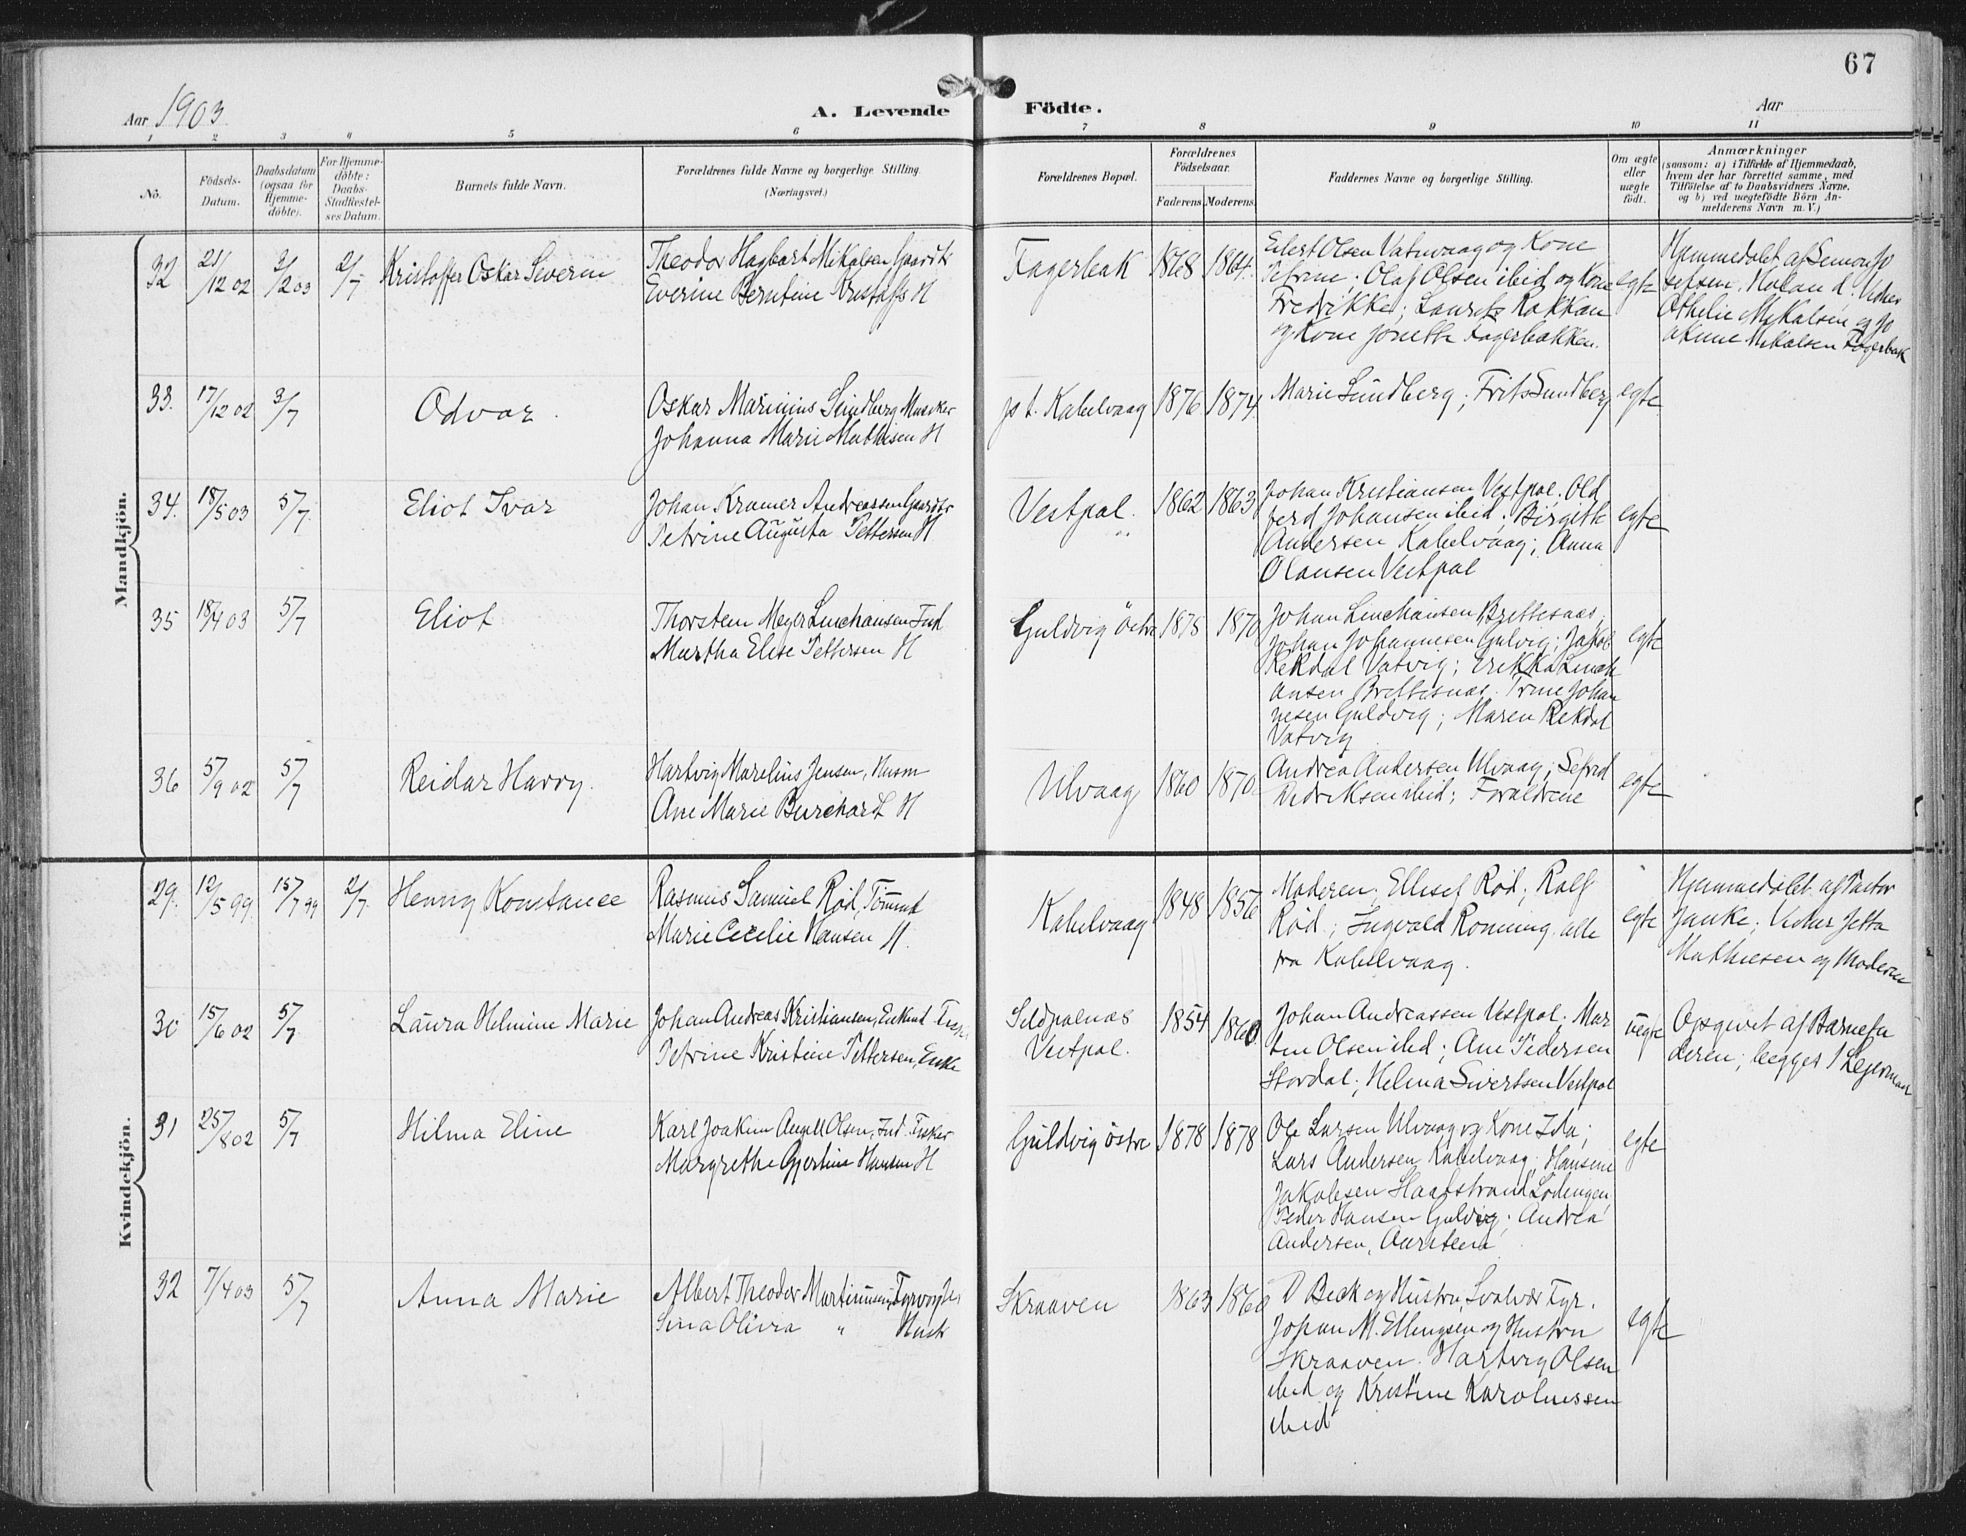 67
Aar 1903
A. Levende Födte.
Aar
1 2 3 4 5 6 7 8 9 10 11
No.
Födsels-
Datum.
Daabsdatum
(ogsaa for
Hjemme-
döbte).
For Hjemme-
döbte:
Daabs-
Stadfæstel-
ses Datum.
Barnets fulde Navn.
Forældrenes fulde Navne og borgerlige Stilling.
(Næringsvei.)
Forældrenes Bopæl.
Forældrenes
Födselsaar.
Faderens Moderens
Faddernes Navne og borgerlige Stilling.
Om ægte
eller
uægte
födt.
Anmærkninger
(saasom: a) i Tilfælde af Hjemmedaab,
hvem der har forrettet samme, med
Tilföielse af to Daabsvidners Navne,
og b) ved uægtefödte Börn An-
melderens Navn m. V.)
Mandkjön.
32 21/12 02 3/2 03 2/7 Kristoffer Oskar Severin
Theodor Hagbart Mikalsen Gaardb
Everine Berntine Kristoffs H
Fagerbak 1868 1864
Eilert Olsen Vatnvaag og Kone
Petrine; Olaf Olsen ibid og Kone
Fredrikke; Laurits Rakkan
og Kone Jonette Fagerbakken.
egte
Hjemmedøbt af Semon Jo
sefsen. Holand. Vidner
Othelie Mikalsen og Jo
akine Mikalsen Fagerbak
33. 17/12 02 3/7 Odvar.
Oskar Marinius Sundberg Musiker
Johanna Marie Mathisen H
ps t. Kabelvaag 1876 1874
Marie Sundberg; Frits Sundberg
egte
34. 18/5 03 5/7 Eliot Ivar
Johan Kramer Andreassen Gaardbr
Petrine Augusta Pettersen H
Vestpol. 1862 1863
Johan Kristiansen Vestpol. Old
ferd Johansen ibid; Birgith
Andersen Kabelvaag; Anna
Olausen Vestpol
egte
35 18/4 03 5/7 Eliot
Thorstein Meyer Linchausen Ind
Martha Elise Pettersen H
Guldvig östre 1875 1870
Johan Linchausen Brettesnæs,
Johan Johannesen Gulvig; Jakob
Rekdal Vatvig; Erikka Linch
ausen Brettesnæs. Trine Johan
nesen Guldvig; Maren Rekdal
Vatvig
egte
36 5/9 02 5/7 Reidar Harry.
Hartvig Marelius Jensen, Husm
Ane Marie Burchardt H
Ulvaag 1860 1870
Andrea Andersen Ulvaag; Sefred
Didriksen ibid; Forældrene
egte
Kvindekjön.
29. 12/5 99 15/7 99 2/7 Henny Konstance
Rasmus Samuel Rød, Tømmd
Marie Cecelie Hansen H.
Kabelvaag 1848 1856
Moderen; Ellisef Rød; Rolf
Rød; Ingvald Ronning alle
fra Kabelvaag.
egte
Hjemmedøbt af Pastor
Janke; Vidner Jetta
Mathiesen og Moderen
30 15/6 02 5/7 Laura Helmine Marie
Johan Andreas Kristiansen, Enkmd Fisk
Petrine Kristine Pettersen, Enke
Sildpolnæs
Vestpol. 1854 1860
Johan Andreassen Vestpol; Mar
ten Olsen ibid; Ane Pedersen
Stordal; Helma Sivertsen Vestpol
uegte
Opgivet af Barnefa
deren; begges 1 Leiermaal
31 25/8 02 5/7 Hilma Eline
Karl Joakim Angell Olsen, Ind. Fisker
Margrethe Gjertine Hansen H
Guldvig östre 1878 1878
Ole Larsen Ulvaag og Kone Ida;
Lars Andersen Kabelvaag, Hansine
Jakobsen Haafstrand Lodengen
Peder Hansen Guldvig; Andrea
Andersen, Aursteen
egte
32 7/4 03 5/7 Anna Marie
Albert Theodor Martinusen, Fyrvogter
Sina Olivia " Hust
Skraaven 1863 1860
D Beck og Hustru, Svolvær Fyr.
Johan M. Ellingsen og Hustru
Skraaven. Hartvig Olsen
ibid og Kristine Karolinessen
ibid
egte